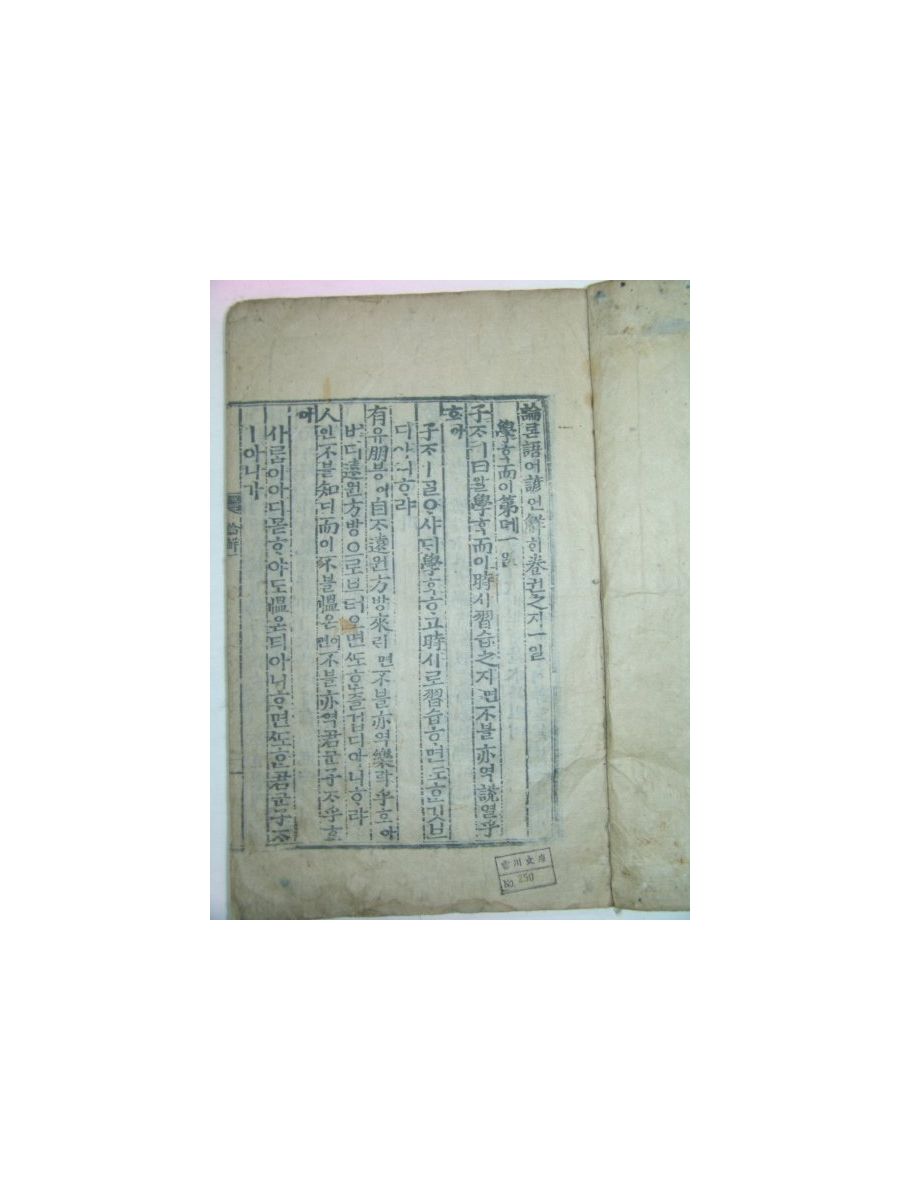 論론語어諺언解ᄒᆡ卷권之지一일
學ᄒᆞᆨ而이第뎨一일
子ᄌᆞㅣ曰왈學ᄒᆞᆨ而이時시習습之지면不블亦역說열乎
호아
子ᄌᆞㅣᄀᆞᆯᄋᆞ샤ᄃᆡ學ᄒᆞᆨᄒᆞ고時시로習습ᄒᆞ면ᄯᅩᄒᆞᆫ깃브
디아니ᄒᆞ랴
有유朋붕이自ᄌᆞ遠원方방來ᄅᆡ면不블亦역樂락乎호아
버디遠원方방으로브터오면ᄯᅩᄒᆞᆫ즐겁디아니ᄒᆞ랴
人인不블知디而이不블慍온이면不블亦역君군子ᄌᆞ乎호
아
사ᄅᆞᆷ이아디몯ᄒᆞ야도慍온티아니ᄒᆞ면ᄯᅩᄒᆞᆫ君군子ᄌᆞ
ㅣ아니가
川文庫
No. 250